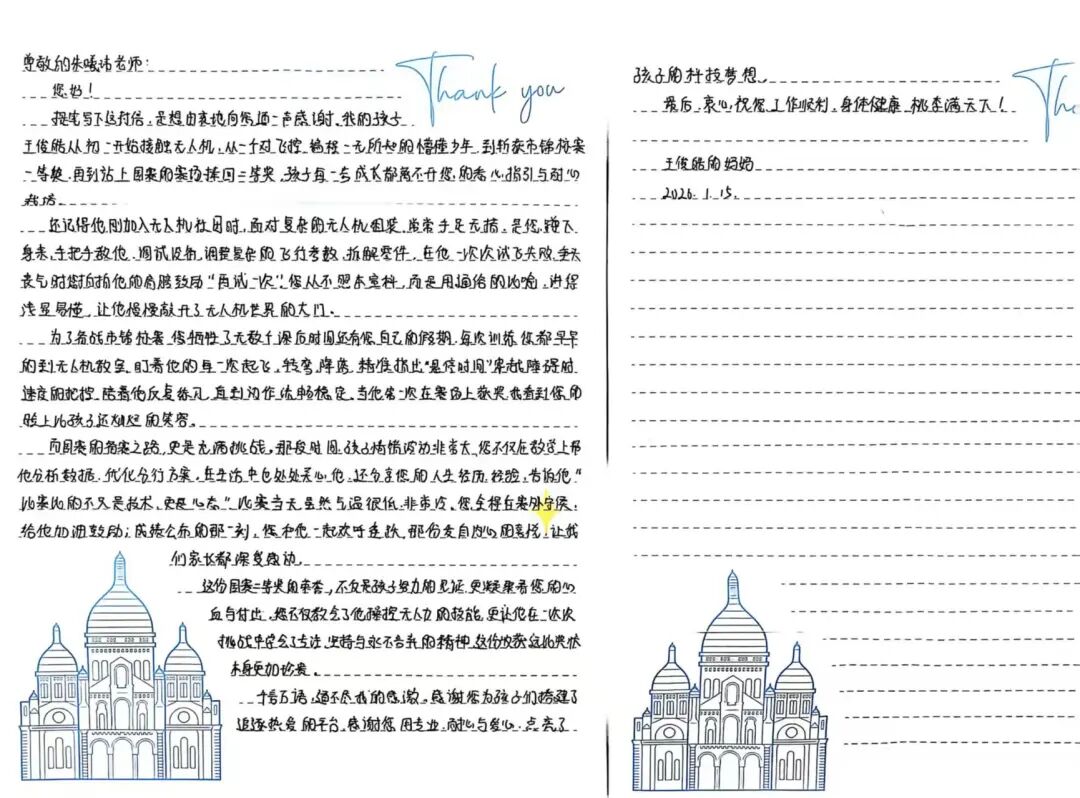 尊敬的朱曦祎老师：
Thank you
您好！
提笔写下这封信，是想由衷地向您道一声感谢。我的孩子
王俊皓从初一开始接触无人机，从一个对飞控、编程一无所知的懵懂少年，到斩获市锦标赛
一等奖，再到站上国赛的赛场捧回二等奖，孩子每一步成长都离不开您的悉心指引与耐心
栽培。
还记得他刚加入无人机社团时，面对复杂的无人机组装，常常手足无措，是您，蹲下
身来，手把手教他，调试设备，调整复杂的飞行参数，拆解零件，在他一次次试飞失败，垂头
丧气时您拍拍他的肩膀鼓励"再试一次"，您从不照本宣科，而是用通俗的比喻，讲得
浅显易懂，让他慢慢敲开了无人机世界的大门。
为了备战市锦标赛，您牺牲了无数个课后时间还有您自己的假期，每次训练，您都早早
的到无人机教室，盯着他的每一次起飞、转弯、降落，精准指出"悬停时间"穿越障碍时
速度的把控，陪着他反复练习，直到动作流畅稳定，当他第一次在赛场上获奖，我看到您的
脸上比孩子还灿烂的笑容。
而国赛的备赛之路，更是充满挑战，那段时间，孩子情绪波动非常大，您不仅在教学上帮
他分析数据，优化飞行方案，在生活中也处处关心他，还分享您的人生经历、经验，告诉他"
比赛比的不只是技术，更是心态"，比赛当天虽然气温很低，非常冷，您全程在赛外守候，
给他加油鼓励；成绩公布的那一刻，您和他一起欢呼连跃，那份发自内心的喜悦，让我
们家长都深受感动。
这份国赛二等奖的荣誉，不仅是孩子努力的见证，更凝聚着您的心
血与付出，您不仅教会了他操控无人力的技能，更让他在一次次
挑战中学会了专注、坚持与永不言弃的精神，这份收获远比奖状
本身更加珍贵。
千言万语，道不尽我的感激，感谢您为孩子们搭建了
追逐热爱的平台，感谢您用专业、耐心与爱心，点亮了
孩子的科技梦想。
最后，衷心祝您工作顺利，身体健康，桃李满天下！
王俊皓的妈妈
2026.1.15.